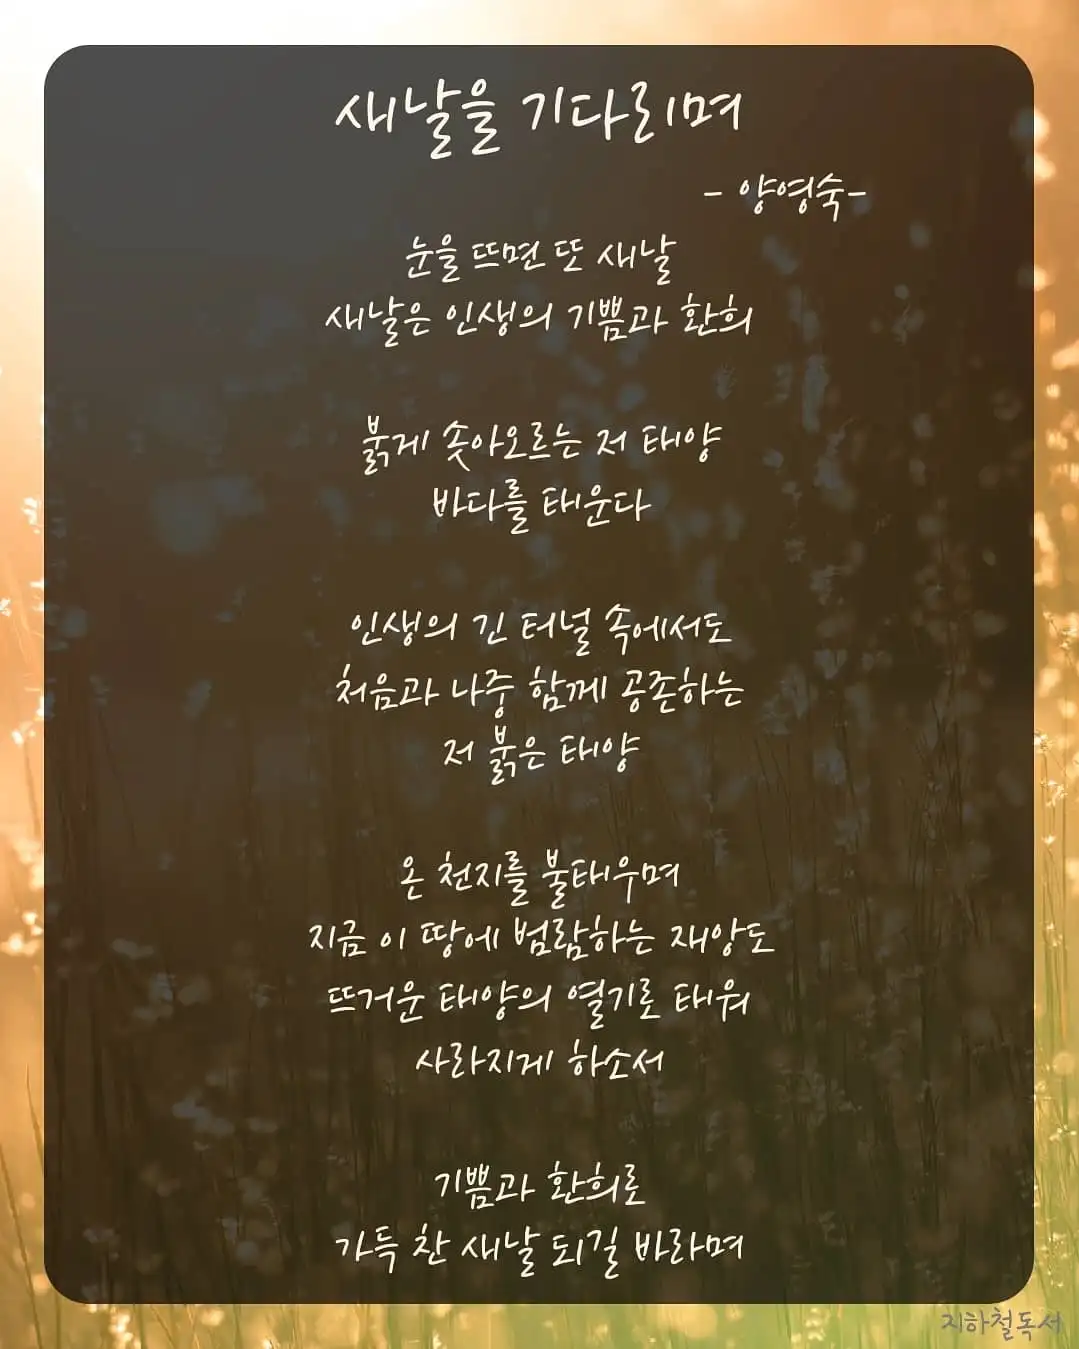 새날을 기다리며
- 양영숙-
눈을 뜨면 또 새날
새날은 인생의 기쁨과 환희
붉게 솟아오르는 저 태양
바다를 태운다
인생의 긴 터널 속에서도
처음과 나중 함께 공존하는
저 붉은 태양
온 천지를 불태우며
지금 이 땅에 범람하는 재앙도
뜨거운 태양의 열기로 태워
사라지게 하소서
기쁨과 환희로
가득 찬 새날 되길 바라며
지하철독서